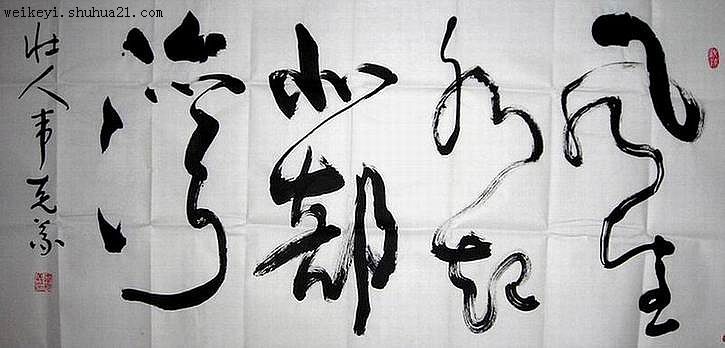 weikeyi.shuhua21.com
风生
水起
北部
湾
壮人韦克义